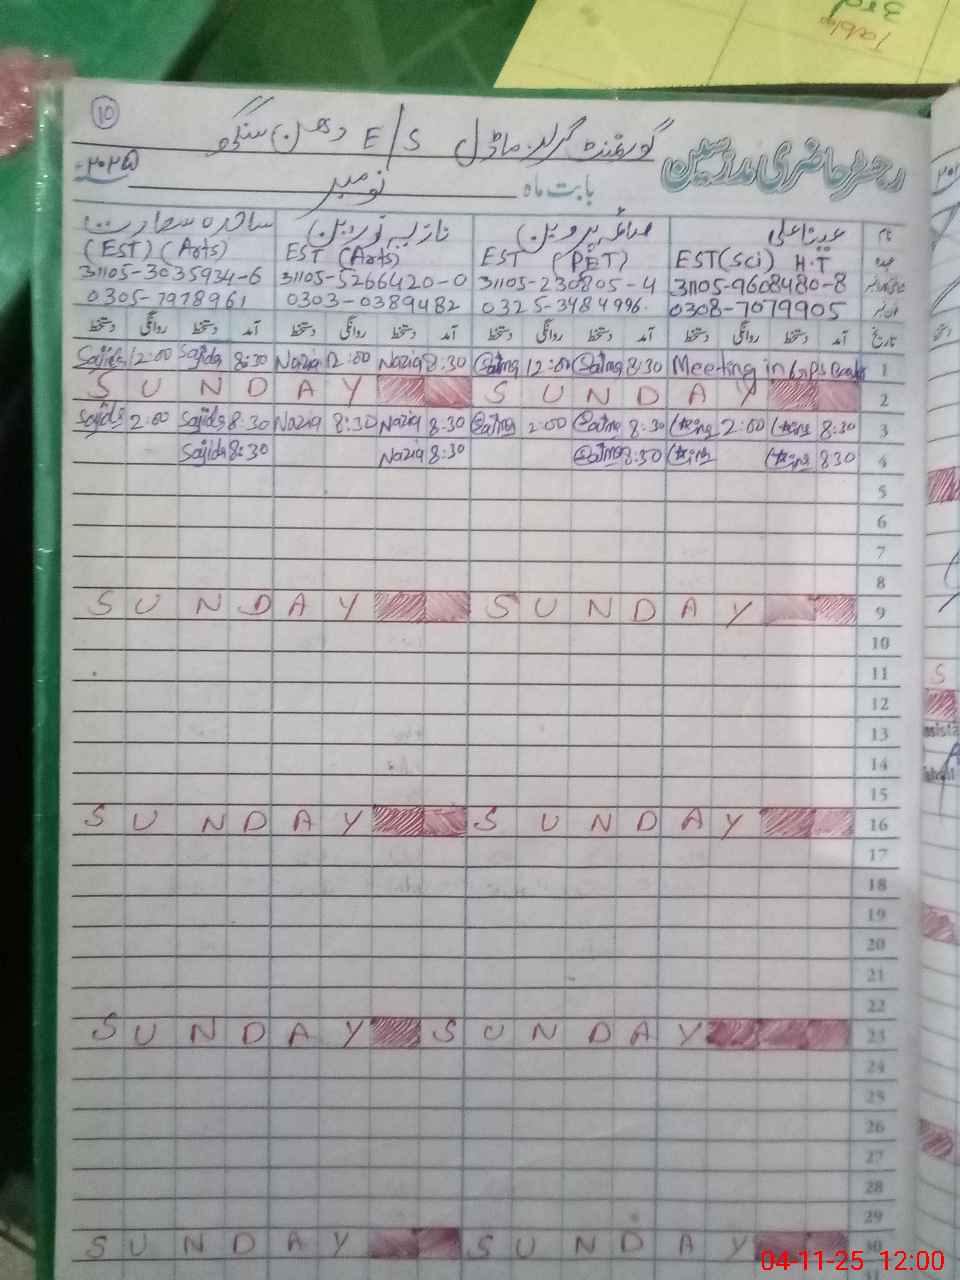 3rd
Table
10
گورنمنٹ گرلز ماڈل E/S دھرن سنگو
رجسٹر حاضری مدرسین
بابت ماہ نومبر ۲۰۲۵
نام
(EST) (Arts) EST (Arts) EST (PET) EST (Sci) H.T عہدہ
31105-3035934-6 31105-5266420-0 31105-230805-4 31105-9608480-8
0305-7978961 0303-0389482 0325-3484996. 0308-7079905
تاریخ آمد دستخط روانگی دستخط آمد دستخط روانگی دستخط آمد دستخط روانگی دستخط آمد دستخط روانگی دستخط
Sajida 12:00 Sajida 8:30 Nazia 12:00 Nazia 8:30 Salma 12:00 Salma 8:30 Meeting in 1
S U N D A Y S U N D A Y 2
Sajida 2:00 Sajida 8:30 Nazia 8:30 Nazia 8:30 Salma 2:00 Salma 8:30 2:00 8:30 3
Sajida 8:30 Nazia 8:30 Salma 8:30 830 4
5
6
7
8
S U N D A Y S U N D A Y 9
10
11
12
13
14
15
S U N D A Y S U N D A Y 16
17
18
19
20
21
22
S U N D A Y S U N D A Y 23
24
25
26
27
28
29
S U N D A Y S U N D A Y 30
S
04-11-25 12:00